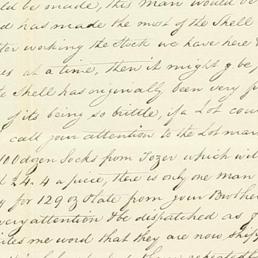 ld be made, this man would be
d has made the most of the Shell
ter working the Stock we have here &
es at a time, then it might be
te Shell has originally been very f
of its being so brittle, if a Lot cou
call your attention to the Lot mar
100 dozen Socks from Tozer which wil
d 24.4 a piece, there is only one man
for 129 oz Plate from your Brother
very attention & be dispatched as
ites me word that they are now ship